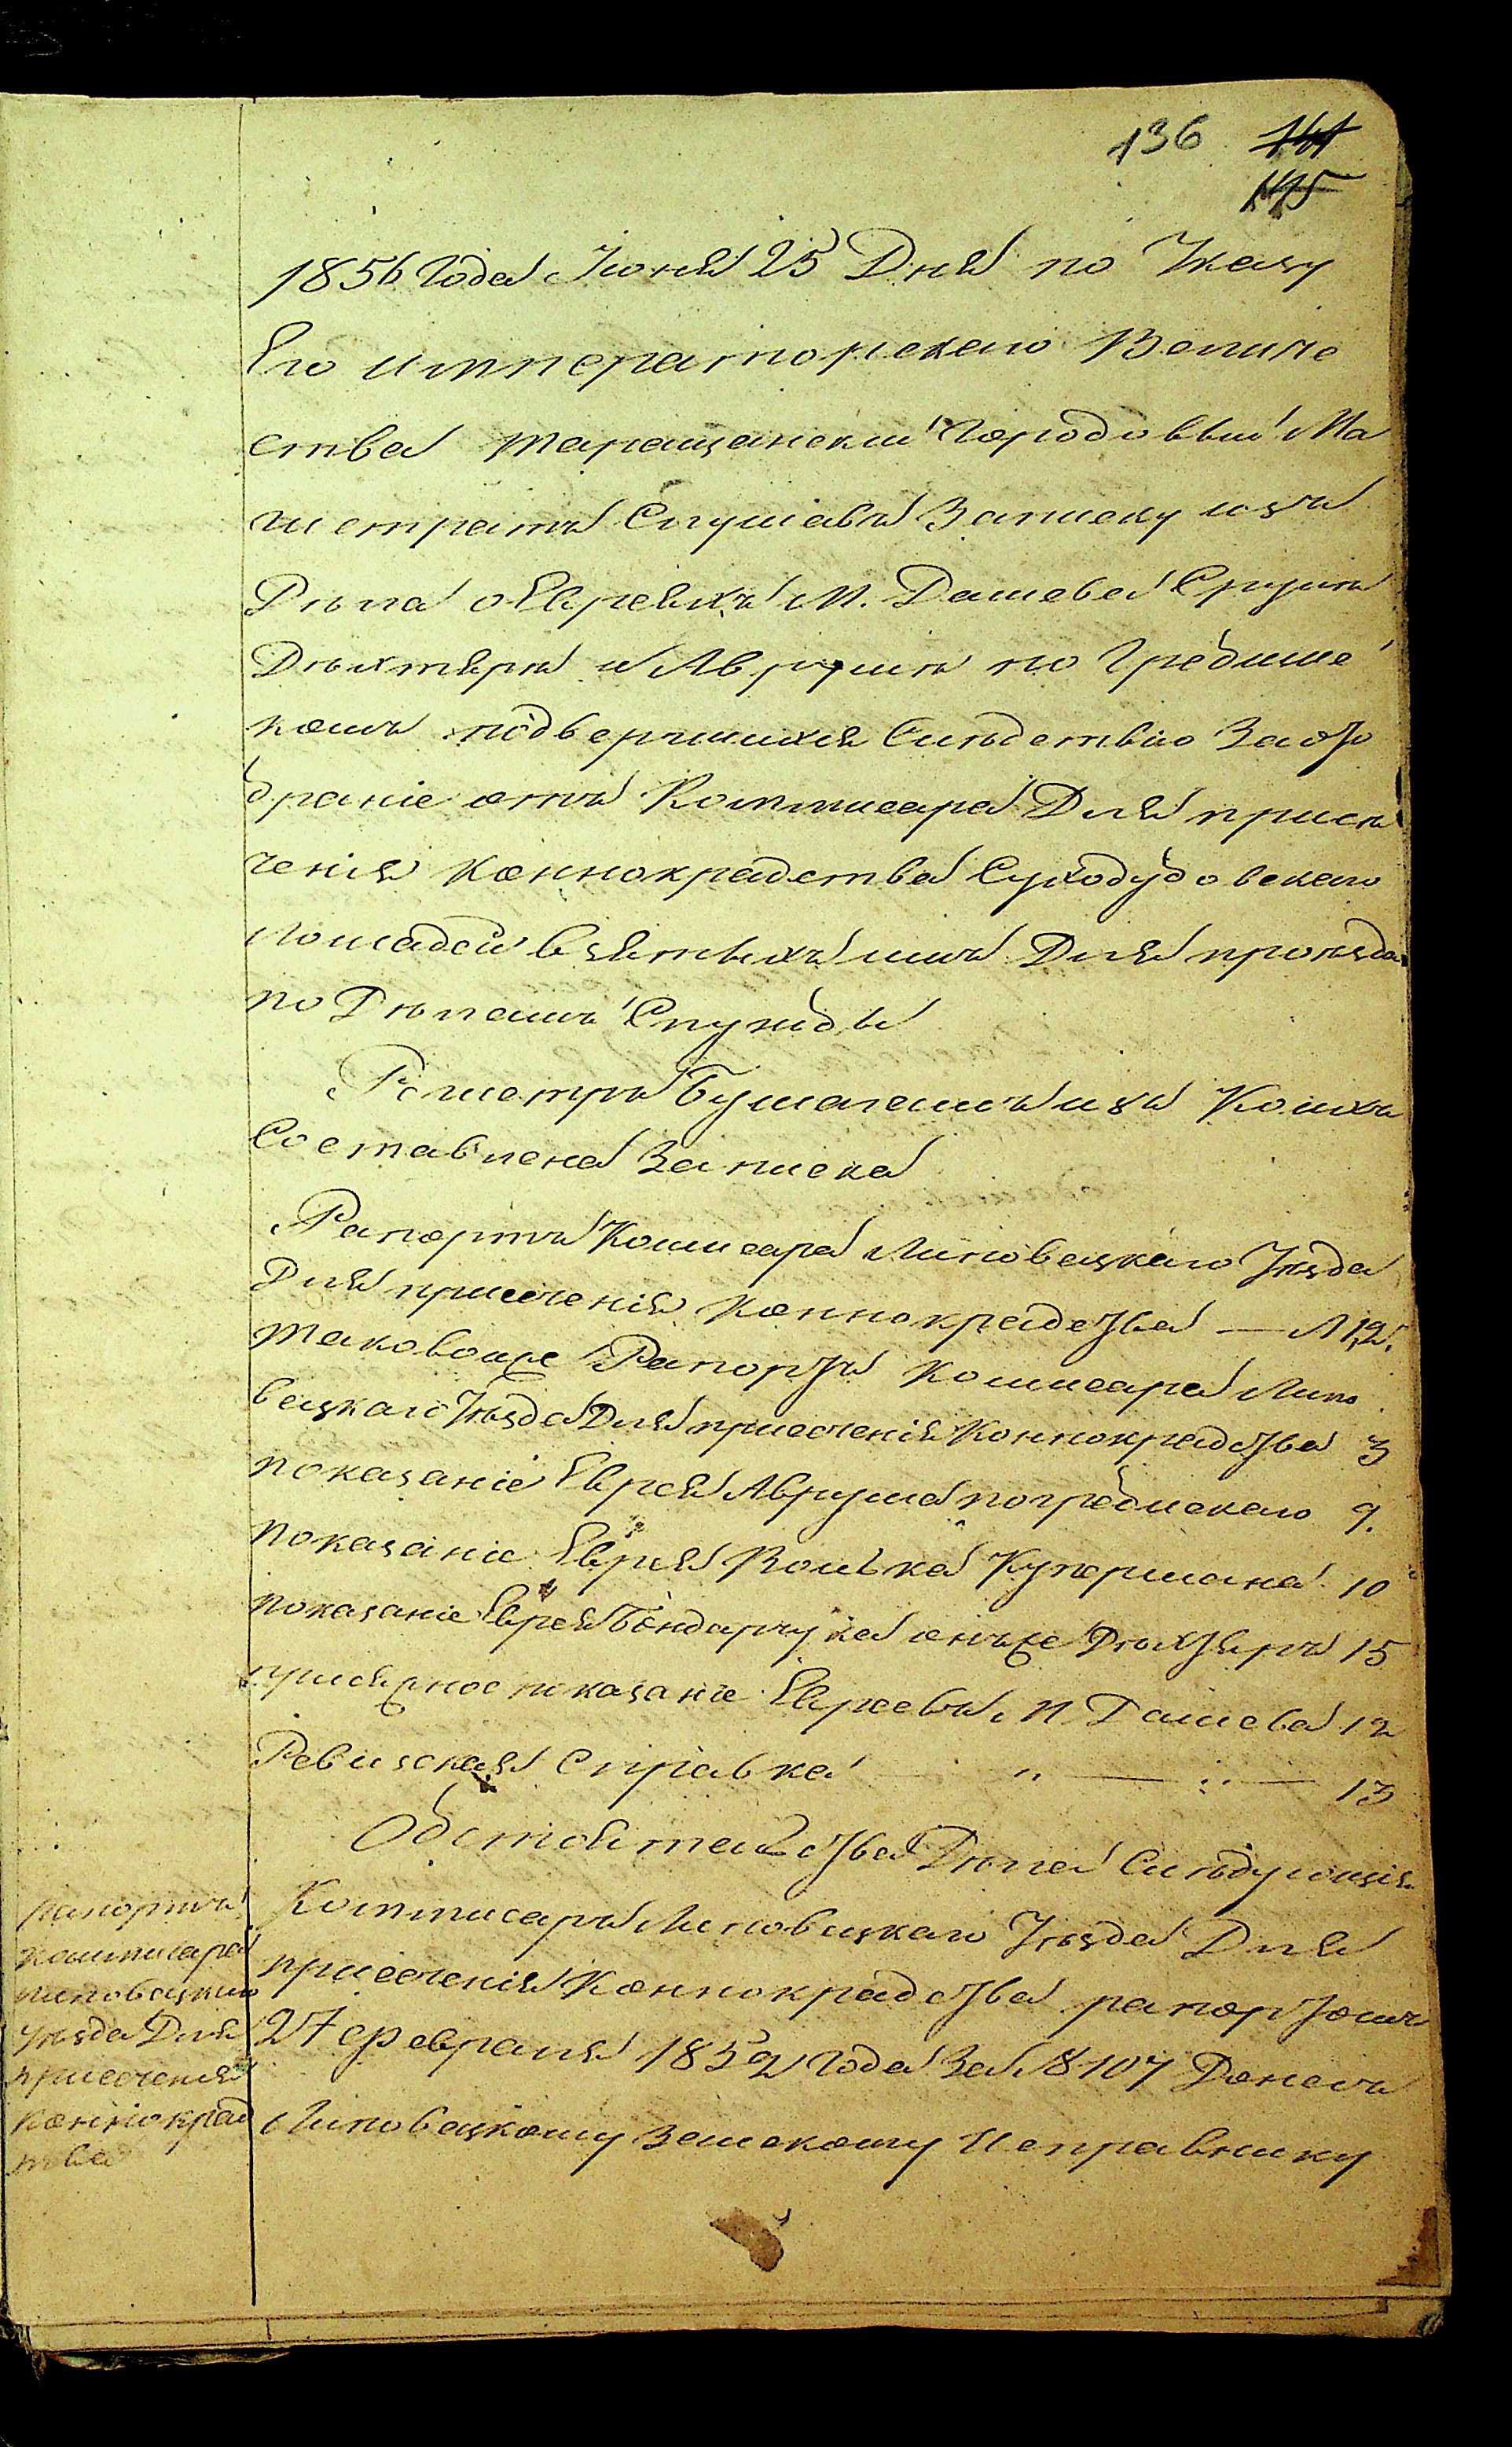 136 141
145
1856 Года Іюня 25 Дня по Указу
Его императорскаго Величе
ства Таращанскій Городовый Ма
гистратъ Слушавъ Записку изъ
Дѣла о Евреяхъ М. Дашева Сруля
Дѣхтярѣ и Аврумѣ по Гребище
комъ подвергшихся Слѣдствію За ото
браніе отъ Коммисара Для присѣ
ченія Коннокрадства Суходудовскаго
лошадей взятыхъ имъ Для проѣзда
по Дѣламъ Службы
Реистръ бумагамъ изъ Коихъ
Составлена Записка
Рапортъ Комисара Липовецкаго Уѣзда
Для присеченія Коннокрадства — Л 1,2.
таковоже Рапортъ Комисара Липо
вецкаго Уѣзда Для присеченія Коннокрадства 3
показаніе Еврея Аврума погребискаго 9.
показаніе Еврея Волька Купермана 10
показаніе Еврея Бондарчука онъже Дѣхтяръ 15
присяжное показаніе Евреевъ М Дашева 12
Ревизская Справка „ — „ — 13
Обстоятельства Дѣла Слѣдующія
Коммисаръ Липовецкаго Уѣзда Для
присеченія Коннокрадства рапортомъ
27 февраля 1852 года За № 107 Донесъ
Липовецкому Земскому Исправнику
рапортъ
коммисара
липовецкаго
уѣзда Для
присеченія
коннокрад
ства